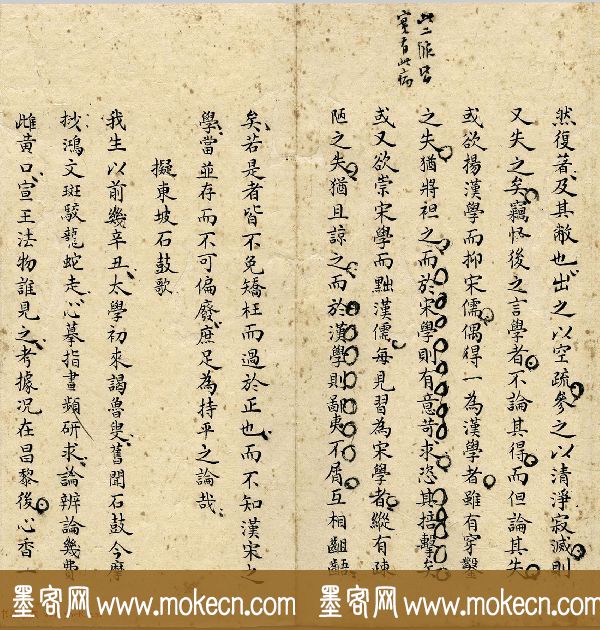 此二派皆
實有此病
然復著及其敝也出之以空疏參之以清淨寂滅則
又失之矣竊怪後之言學者不論其得而但論其失
或欲揚漢學而抑宋儒偶得一為漢學者雖有穿鑿
之失猶將袒之而於宋學則有意苛求恣其掊擊矣
或又欲崇宋學而黜漢儒每見習為宋學者縱有疎
陋之失猶且諒之而於漢學則鄙夷不屑互相齟齬
矣若是者皆不免矯枉而過於正也而不知漢宋之
學當並存而不可偏廢庶足為持平之論哉
擬東坡石鼓歌
我生以前幾辛丑太學初來謁魯叟舊聞石鼓今摩
抄鴻文斑駮龍蛇走心摹指畫頻研求論辨幾費
雌黃口宣王法物誰見之考據況在昌黎後心香
墨客网 www.mokecn.com
墨客网 www.mokecn.com